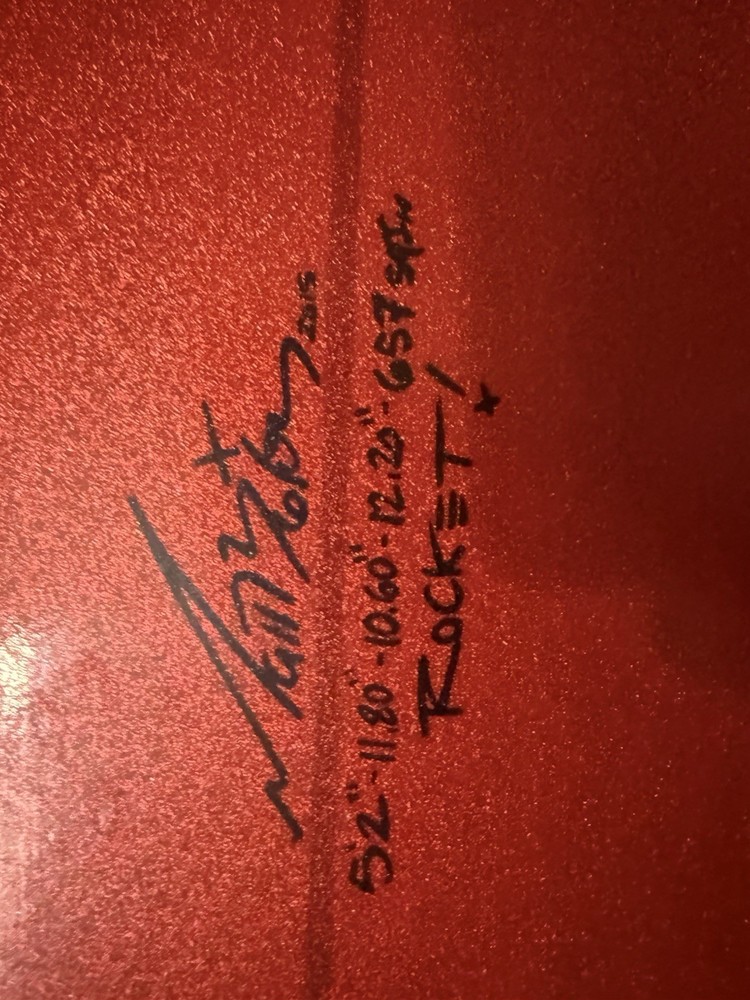 2015
52"-11.80"-10.60"-12.20"-657 SqIn
ROCKET!